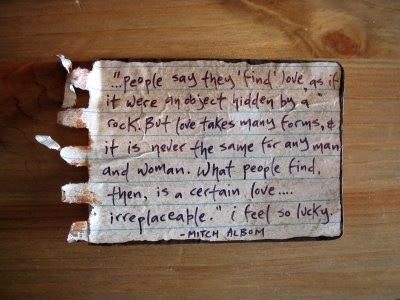 "...people say they 'find' love as if
it were an object hidden by a
rock. But love takes many forms, &
it is never the same for any man
and woman. What people find,
then, is a certain love....
irreplaceable." i feel so lucky.
-MITCH ALBOM